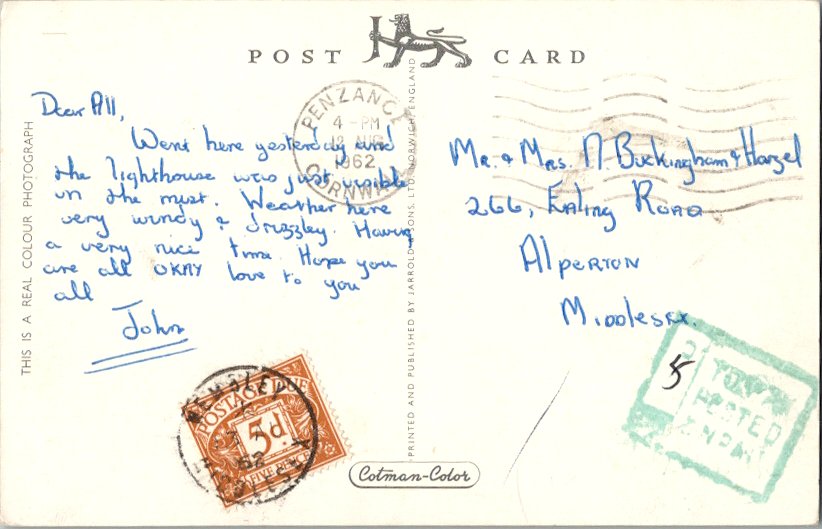 POST CARD
PENZANCE
4-PM
18 AUG
1962
CORNWALL
Dear All,
Went here yesterday and
the lighthouse was just visible
in the mist. Weather here
very windy & drizzley. Having
a very nice time. Hope you
are all OKAY love to you
all
John
Mr. & Mrs. N. Buckingham & Hazel
266, Ealing Road
Alperton
Middlesex.
THIS IS A REAL COLOUR PHOTOGRAPH
PRINTED AND PUBLISHED BY JARROLD & SONS LTD NORWICH ENGLAND
WEMBLEY
62
MIDDLESEX
POSTAGE DUE
5d
FIVE PENCE
Cotman-Color
5
TO PAY
POSTED